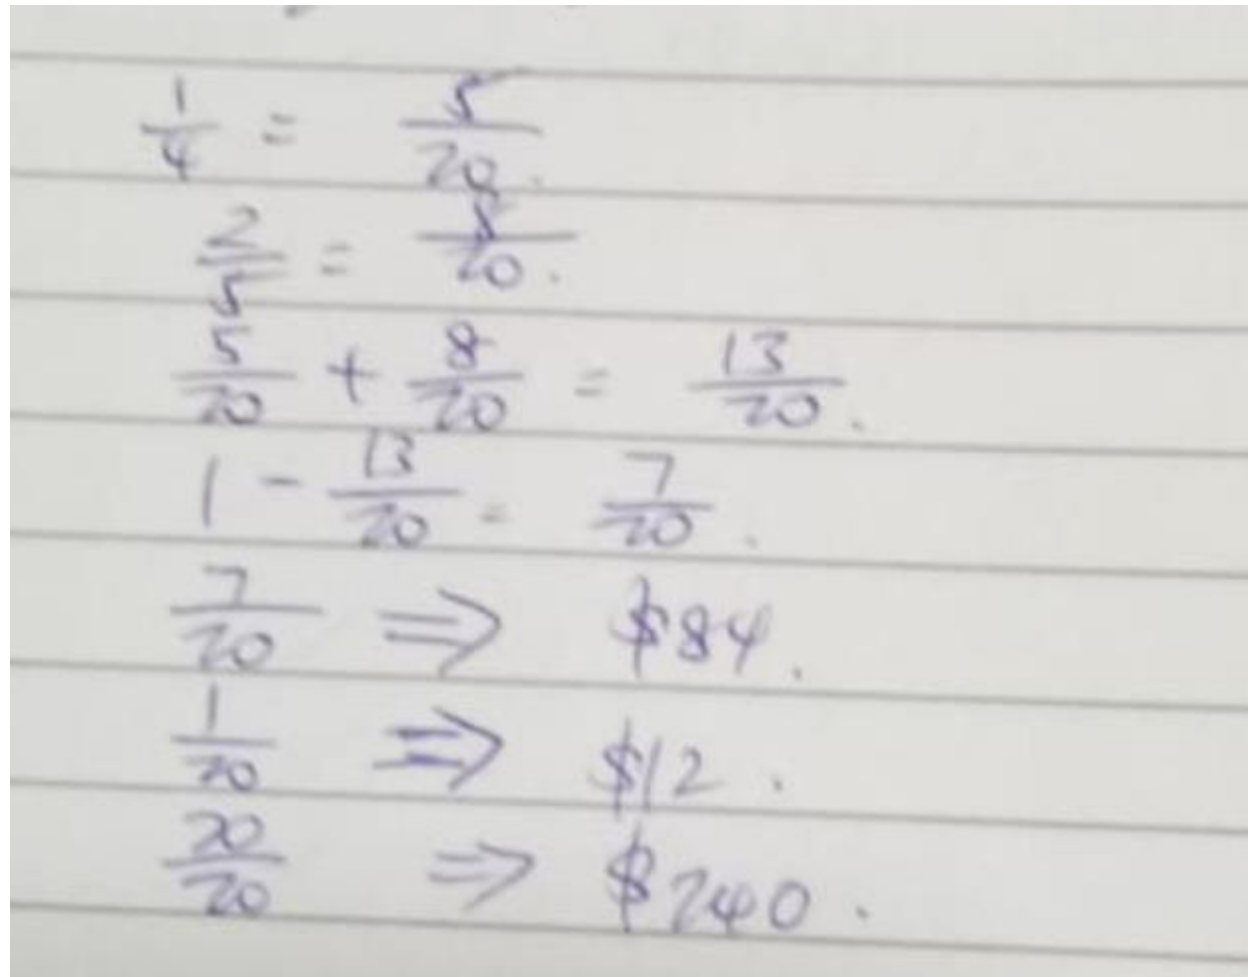 1/4 = 5/20.
2/5 = 8/20.
5/20 + 8/20 = 13/20.
1 - 13/20 = 7/20.
7/20 ⇒ $84.
1/20 ⇒ $12.
20/20 ⇒ $240.